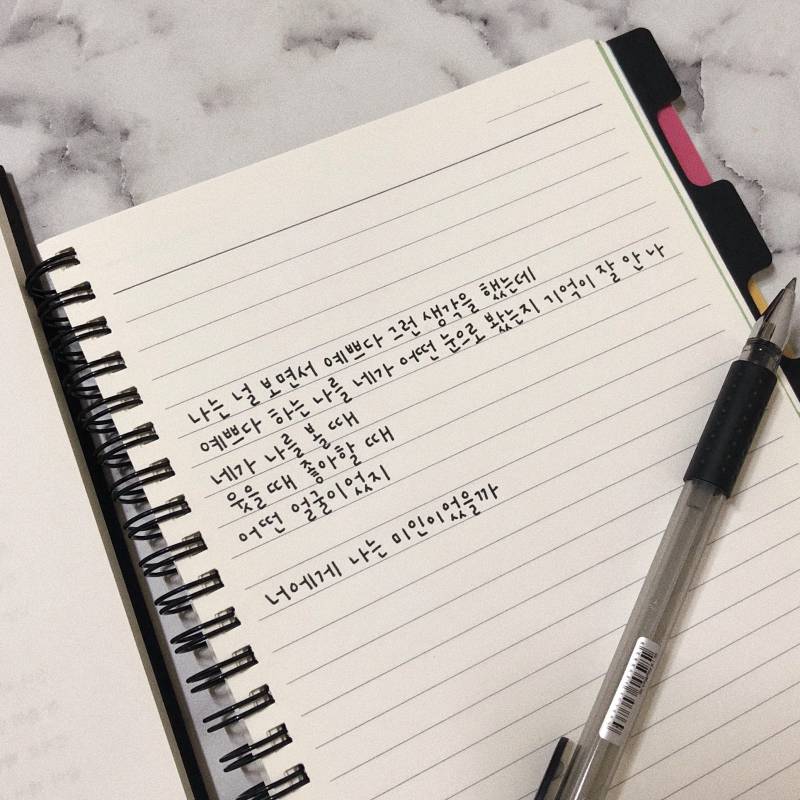 나는 널 보면서 예쁘다 그런 생각을 했는데
예쁘다 하는 나를 네가 어떤 눈으로 봤는지 기억이 잘 안 나
네가 나를 볼 때
웃을 때 좋아할 때
어떤 얼굴이었지
너에게 나는 미인이었을까